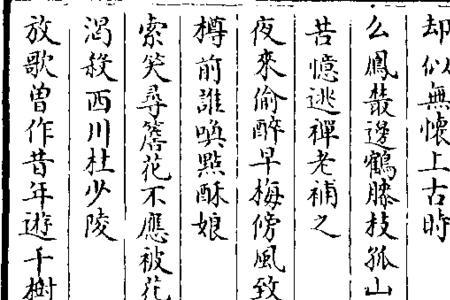 却似無懷上古時
么鳳叢邊鶴膝枝孤山
苦憶逃禪老補之
夜來偷醉早梅傍風致
樽前誰喚點酥娘
索笑尋簷花不應被花
渴殺西川杜少陵
放歌曾作昔年遊千樹